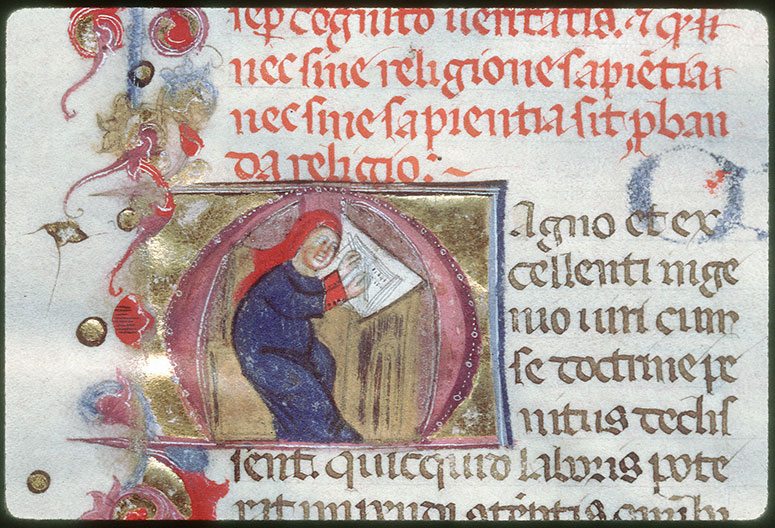 rep cognitio ueritatis. ⁊ qͣ
nec sine religione sapiētia
nec sine sapientia sit ꝓban
da religio:~
Agno et ex
cellenti inge
nio uiri cum
se doctrine pe
nitus dedis
sent. quicquid laboris pote
rat